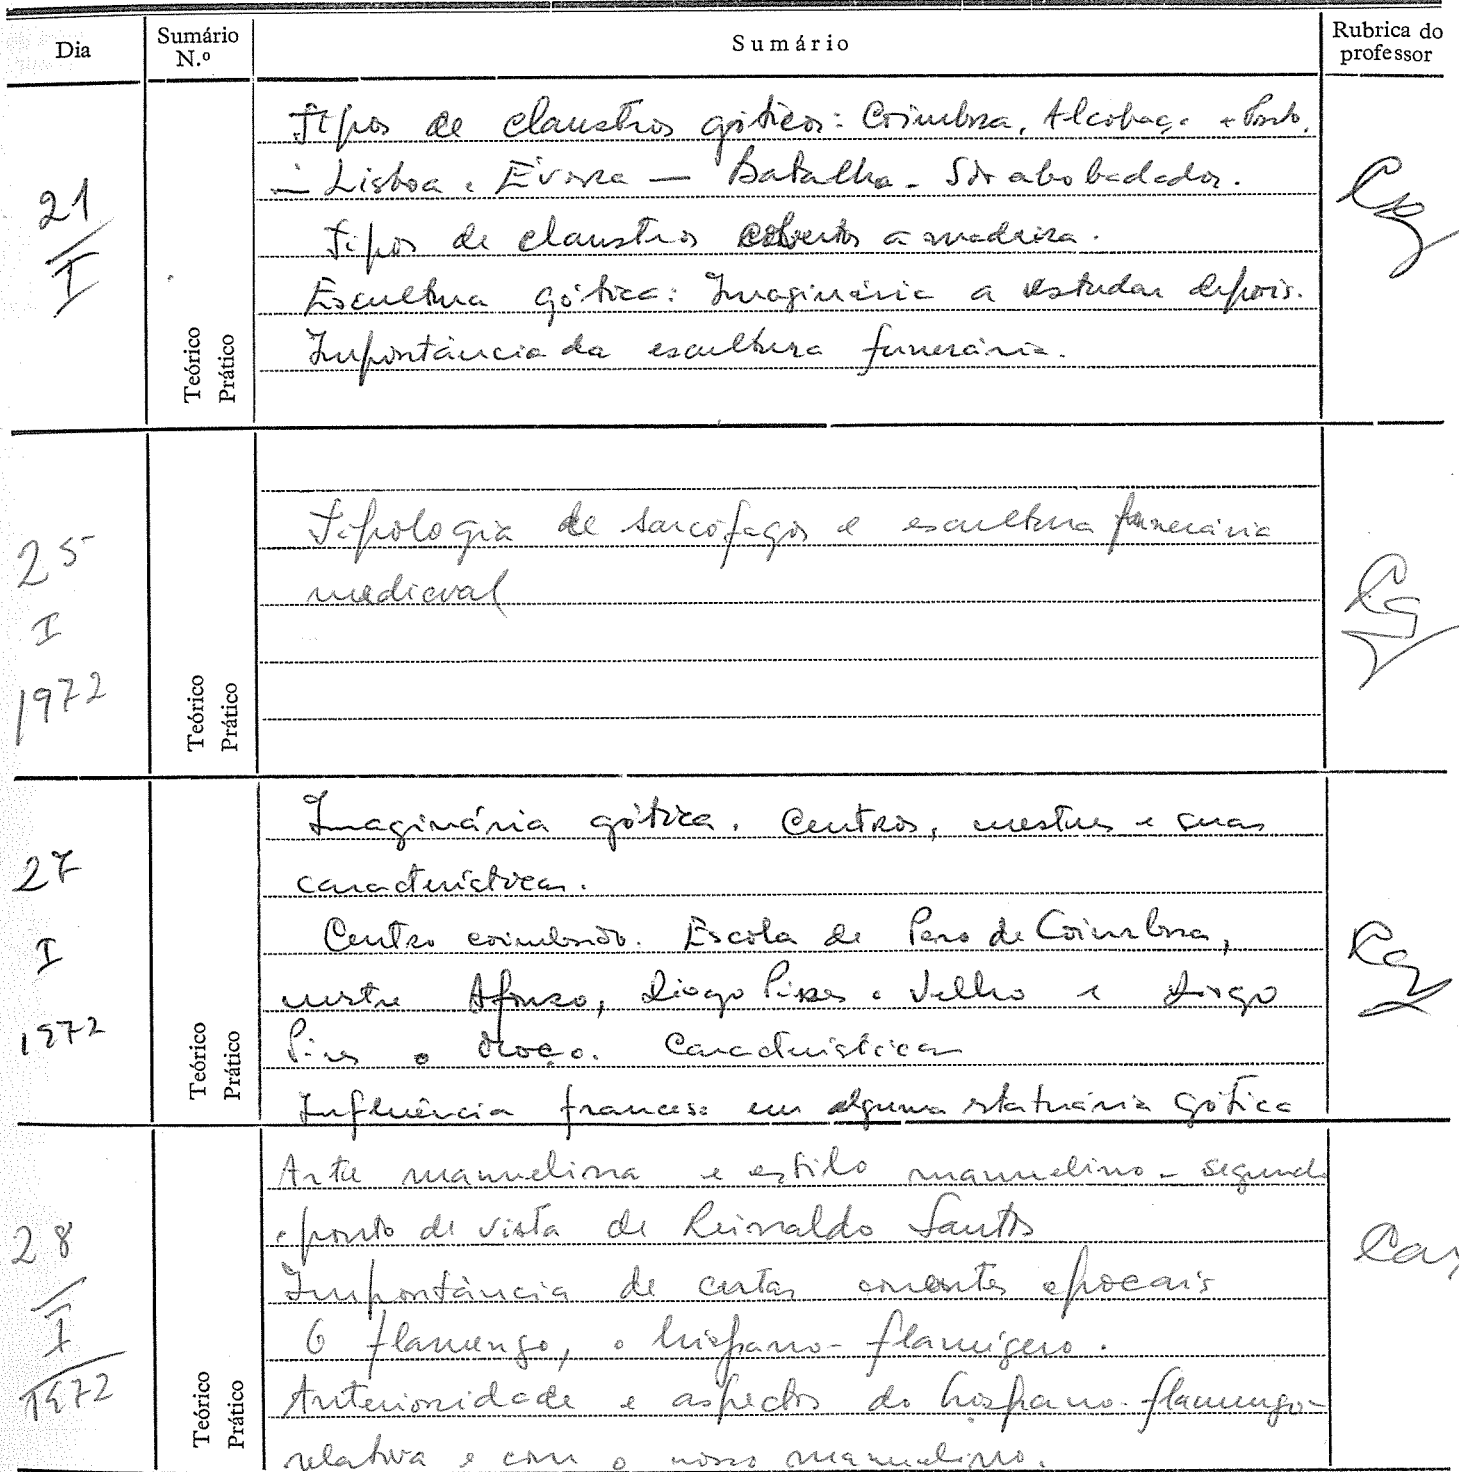 Dia
Sumário N.º
Sumário
Rubrica do professor
21
I
Teórico
Prático
Tipos de claustros góticos: Coimbra, Alcobaça e Porto.
— Lisboa e Évora — Batalha. São abobadados.
Tipos de claustros cobertos a madeira.
Escultura gótica: Imaginária a estudar depois.
Importância da escultura funerária.
25
I
1972
Teórico
Prático
Tipologia de sarcófagos e escultura funerária
medieval
27
I
1972
Teórico
Prático
Imaginária gótica. Centros, mestres e suas
características.
Centro coimbrão. Escola de Pero de Coimbra,
mestre Afonso, Diogo Pires o Velho e Diogo
Pires o Moço. Características
Influência francesa em alguma estatuária gótica
28
I
1972
Teórico
Prático
Arte manuelina e estilo manuelino - segundo
o ponto de vista de Reinaldo Santos
Importância de certas correntes epocais
O flamengo, o hispano-flamígero.
Anterioridade e aspectos do hispano-flamengo
relativa e com o nosso manuelino.